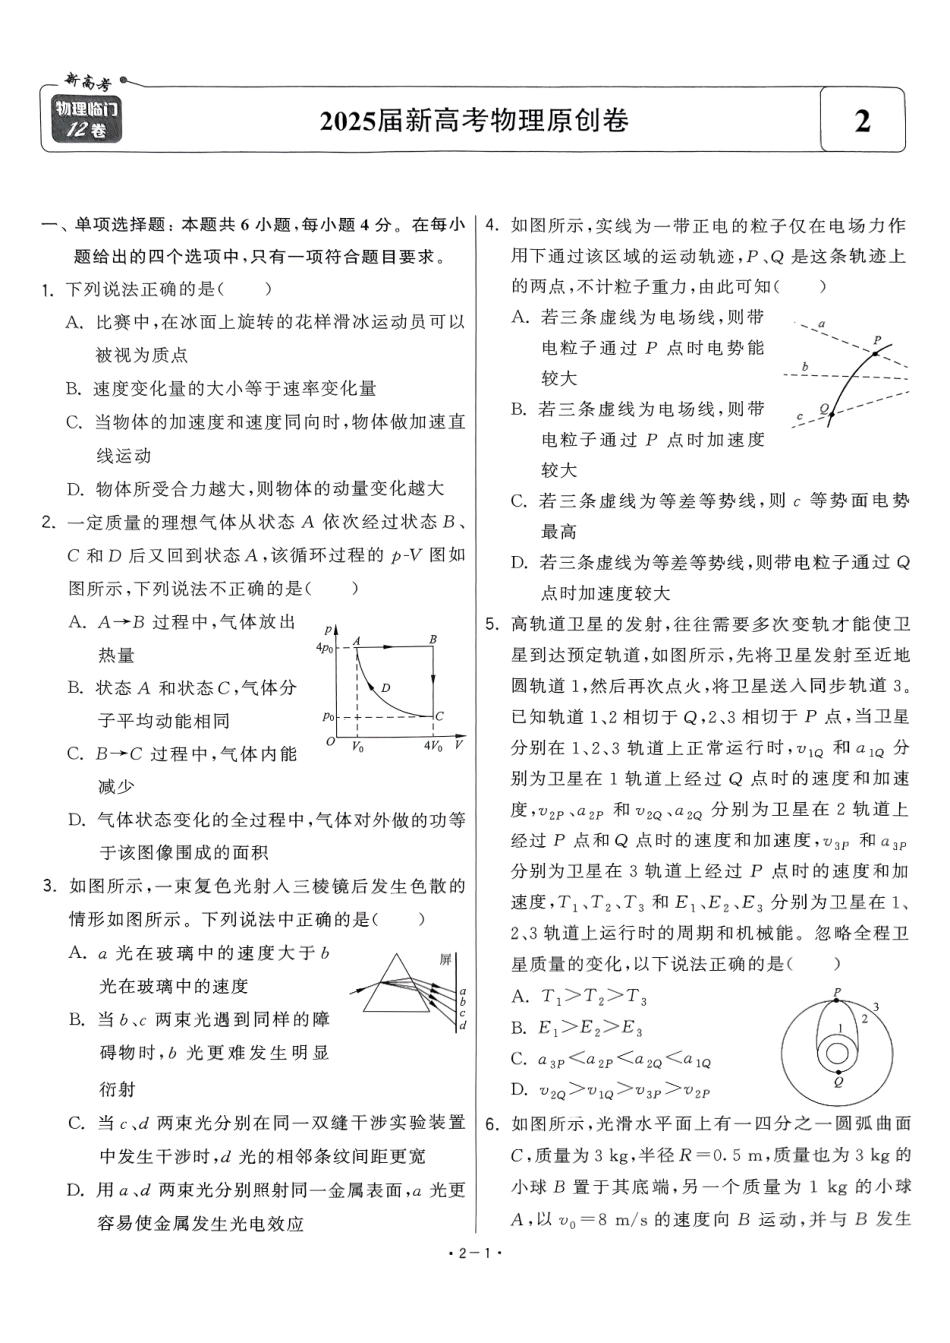 新高考
物理临门
12卷
2025届新高考物理原创卷
2
一、单项选择题：本题共 6 小题，每小题 4 分。在每小
题给出的四个选项中，只有一项符合题目要求。
1. 下列说法正确的是(　　)
A. 比赛中，在冰面上旋转的花样滑冰运动员可以
被视为质点
B. 速度变化量的大小等于速率变化量
C. 当物体的加速度和速度同向时，物体做加速直
线运动
D. 物体所受合力越大，则物体的动量变化越大
2. 一定质量的理想气体从状态 A 依次经过状态 B、
C 和 D 后又回到状态 A，该循环过程的 p-V 图如
图所示，下列说法不正确的是(　　)
A. A→B 过程中，气体放出
热量
B. 状态 A 和状态 C，气体分
子平均动能相同
C. B→C 过程中，气体内能
减少
p
4p₀
A
B
D
p₀
C
O
V₀
4V₀
V
D. 气体状态变化的全过程中，气体对外做的功等
于该图像围成的面积
3. 如图所示，一束复色光射入三棱镜后发生色散的
情形如图所示。下列说法中正确的是(　　)
A. a 光在玻璃中的速度大于 b
光在玻璃中的速度
B. 当 b、c 两束光遇到同样的障
碍物时，b 光更难发生明显
衍射
屏
a
b
c
d
C. 当 c、d 两束光分别在同一双缝干涉实验装置
中发生干涉时，d 光的相邻条纹间距更宽
D. 用 a、d 两束光分别照射同一金属表面，a 光更
容易使金属发生光电效应
4. 如图所示，实线为一带正电的粒子仅在电场力作
用下通过该区域的运动轨迹，P、Q 是这条轨迹上
的两点，不计粒子重力，由此可知(　　)
A. 若三条虚线为电场线，则带
电粒子通过 P 点时电势能
较大
B. 若三条虚线为电场线，则带
电粒子通过 P 点时加速度
较大
a
P
b
c
Q
C. 若三条虚线为等差等势线，则 c 等势面电势
最高
D. 若三条虚线为等差等势线，则带电粒子通过 Q
点时加速度较大
5. 高轨道卫星的发射，往往需要多次变轨才能使卫
星到达预定轨道，如图所示，先将卫星发射至近地
圆轨道 1，然后再次点火，将卫星送入同步轨道 3。
已知轨道 1、2 相切于 Q，2、3 相切于 P 点，当卫星
分别在 1、2、3 轨道上正常运行时，v₁Q 和 a₁Q 分
别为卫星在 1 轨道上经过 Q 点时的速度和加速
度，v₂P、a₂P 和 v₂Q、a₂Q 分别为卫星在 2 轨道上
经过 P 点和 Q 点时的速度和加速度，v₃P 和 a₃P
分别为卫星在 3 轨道上经过 P 点时的速度和加
速度，T₁、T₂、T₃ 和 E₁、E₂、E₃ 分别为卫星在 1、
2、3 轨道上运行时的周期和机械能。忽略全程卫
星质量的变化，以下说法正确的是(　　)
A. T₁>T₂>T₃
B. E₁>E₂>E₃
C. a₃P<a₂P<a₂Q<a₁Q
D. v₂Q>v₁Q>v₃P>v₂P
P
3
2
1
Q
6. 如图所示，光滑水平面上有一四分之一圆弧曲面
C，质量为 3 kg，半径 R=0.5 m，质量也为 3 kg 的
小球 B 置于其底端，另一个质量为 1 kg 的小球
A，以 v₀=8 m/s 的速度向 B 运动，并与 B 发生
·2－1·